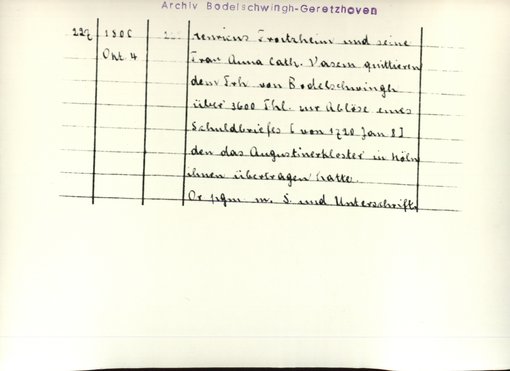 Archiv Bodelschwingh-Geretzhoven
227 1806 Henricus Froitzheim und seine
Okt. 4 Frau Anna Cath. Vasem quittieren
dem Frh von Bodelschwingh
über 3600 Thl. zur Ablöse eines
Schuldbriefes [von 1720 Jan 8]
den das Augustinerkloster in Köln
ihnen übertragen hatte.
Or pgm m. S. und Unterschrift.